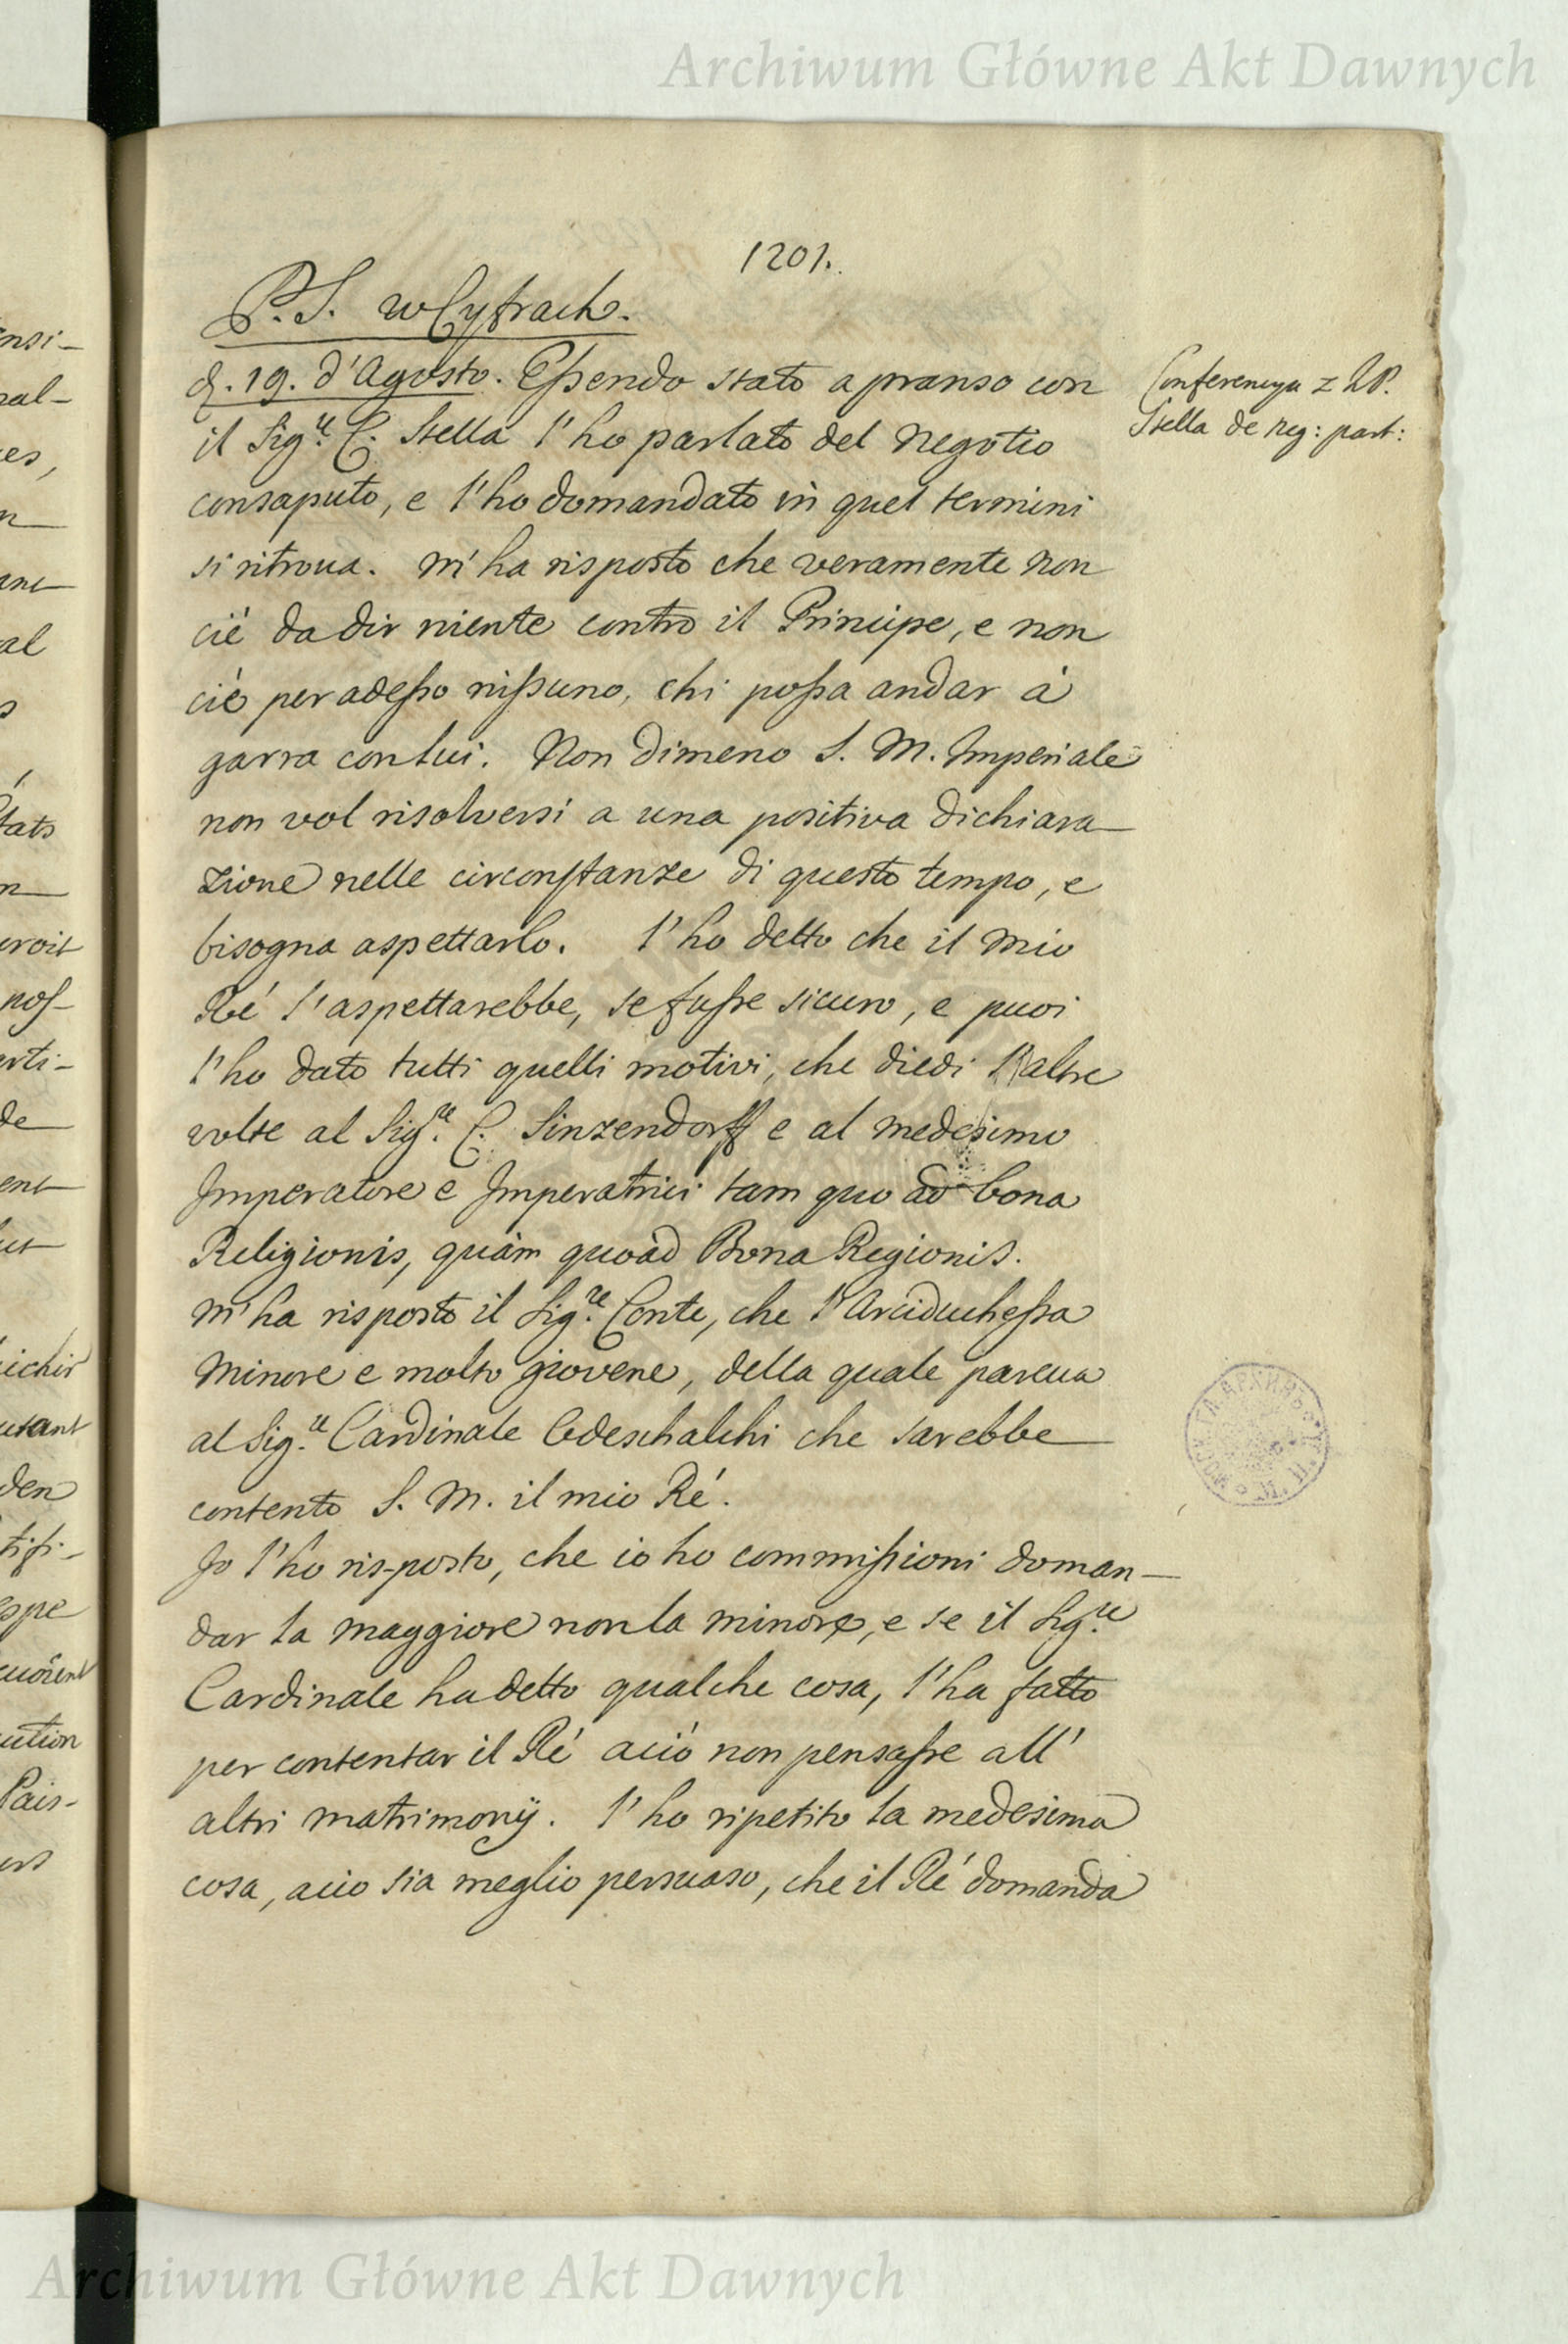 Archiwum Główne Akt Dawnych
1201.
P.S. w Cyfrach.
d. 19. d'Agosto. Eßendo stato a pranso con
il Sig.re C. Stella l'ho parlato del negotio
consaputo, e l'ho domandato in quel termini
si ritroua. m'ha risposto che veramente non
cié da dir niente contro il Principe, e non
cié per adeßo nißuno, chi poßa andar à
garra con lui. Non dimeno S. M. Imperiale
non vol risolversi a una positiva dichiara-
zione nelle circonstanze di questo tempo, e
bisogna aspettarlo. l'ho detto che il mio
Ré l'aspettarebbe, se fuße sicuro, e puoi
l'ho dato tutti quelli motivi, che diedi l'altre
volte al Sig.re C. Sinzendorff e al medesimo
Imperatore e Imperatrici tam quo ad bona
Religionis, quàm quoad Bona Regionis.
m'ha risposto il Sig.re Conte, che l'Arciducheßa
minore e molto giovene, della quale pareua
al Sig.re Cardinale Odeschalchi che sarebbe
contento S. M. il mio Ré.
Jo l'ho ris-posto, che io ho commißioni doman-
dar la maggiore non la minore, e se il Sig.re
Cardinale ha detto qualche cosa, l'ha fatto
per contentar il Ré ació non pensaße all'
altri matrimonÿ. l'ho ripetito la medesima
cosa, acio sia meglio persuaso, che il Ré domanda
Conferencya z
Stella de neg: part:
Archiwum Główne Akt Dawnych